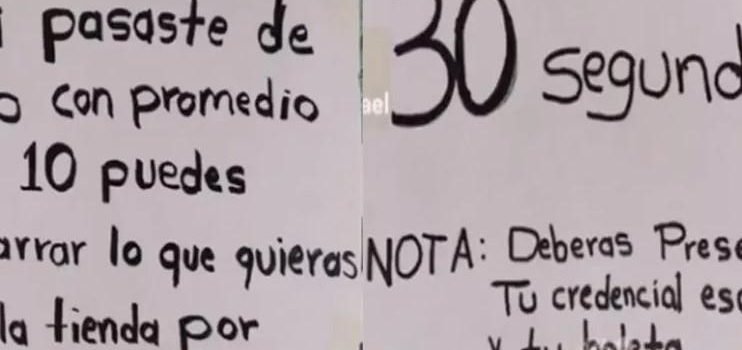 i pasaste de
o con promedio
10 puedes
arrar lo que quieras
la tienda por
ael
30 segund
NOTA: Deberas Prese
Tu credencial esc
y tu boleta